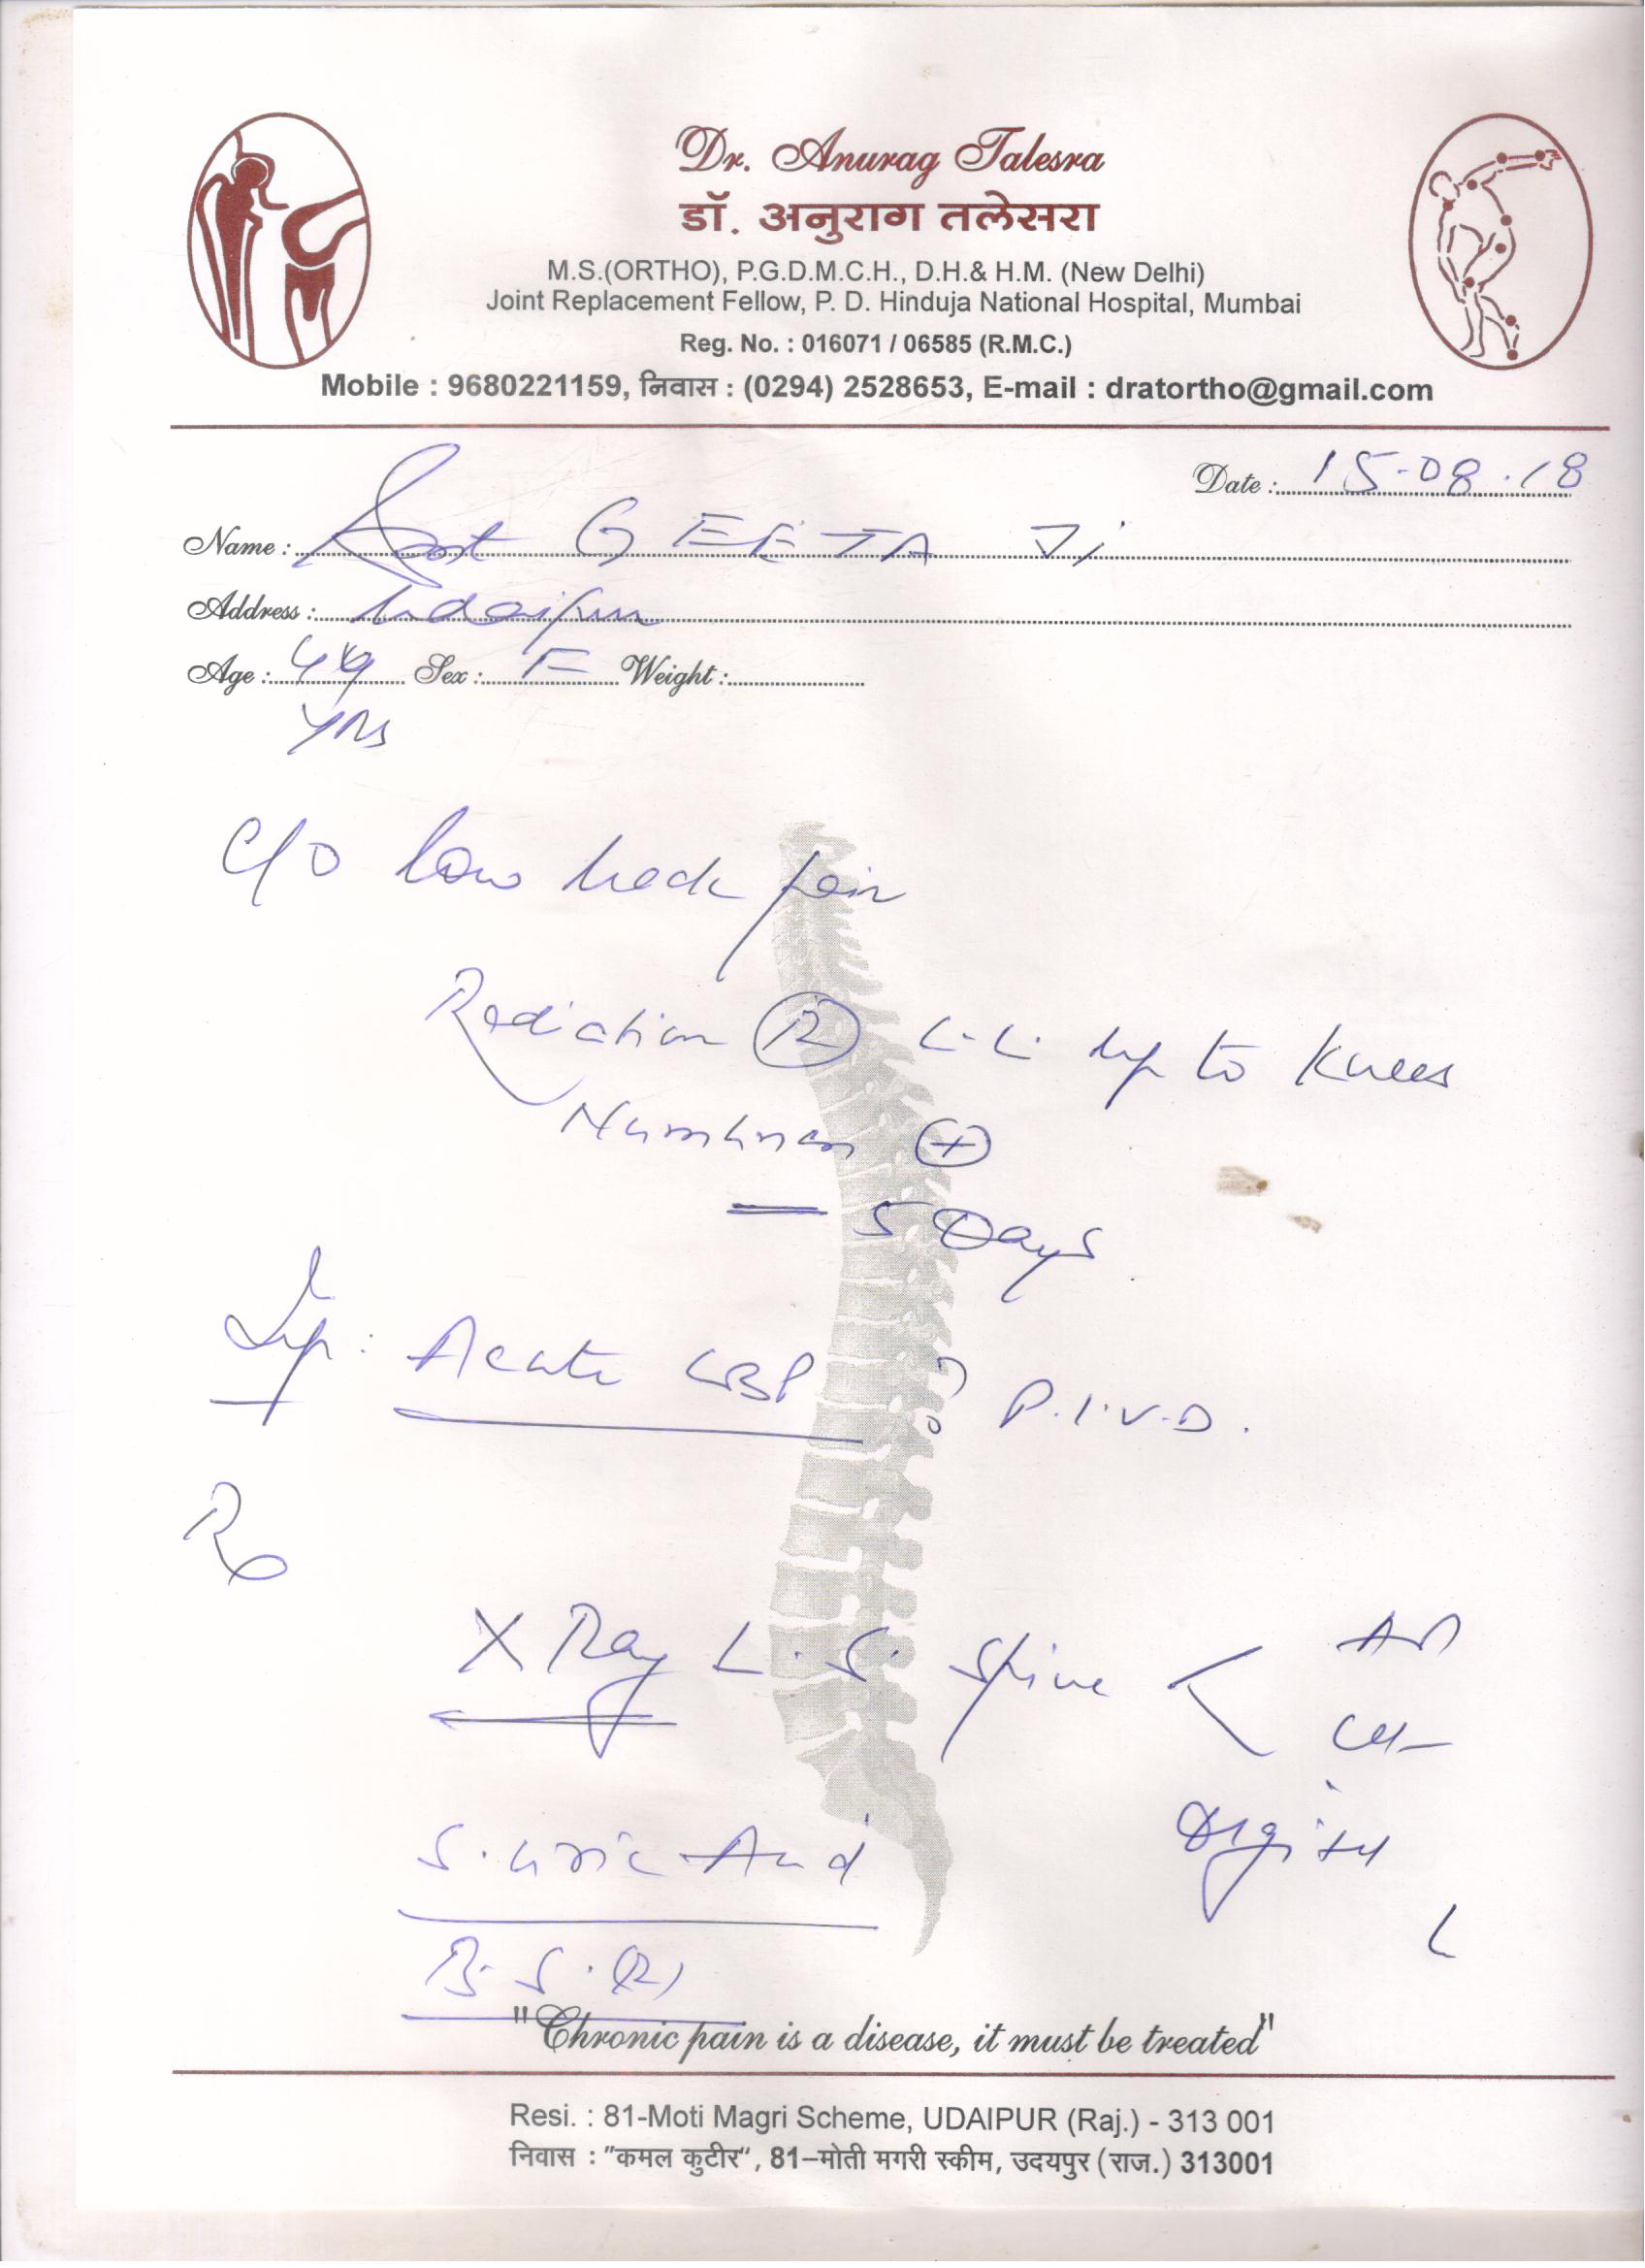 Dr. Anurag Talesra
डॉ. अनुराग तलेसरा
M.S.(ORTHO), P.G.D.M.C.H., D.H.& H.M. (New Delhi)
Joint Replacement Fellow, P. D. Hinduja National Hospital, Mumbai
Reg. No. : 016071 / 06585 (R.M.C.)
Mobile : 9680221159, निवास : (0294) 2528653, E-mail : dratortho@gmail.com
Date : 15.08.18
Name : Smt GEETA Ji
Address : Udaipur
Age : Sex : F Weight :
yrs
C/O low back pain
Radiation R L.L. up to knees
Numbness +
— 5 Days
Imp : Acute LBP ? P.I.V.D.
Rx
X Ray L.S. Spine < AP
Digital
S. Uric Acid
B.S. (R)
"Chronic pain is a disease, it must be treated"
Resi. : 81-Moti Magri Scheme, UDAIPUR (Raj.) - 313 001
निवास : "कमल कुटीर", 81–मोती मगरी स्कीम, उदयपुर (राज.) 313001